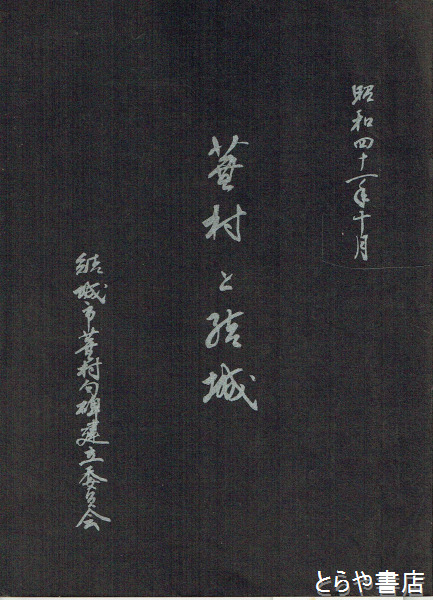 昭和四十一年十月
蕪村と結城
結城市蕪村句碑建立委員会
とらや書店